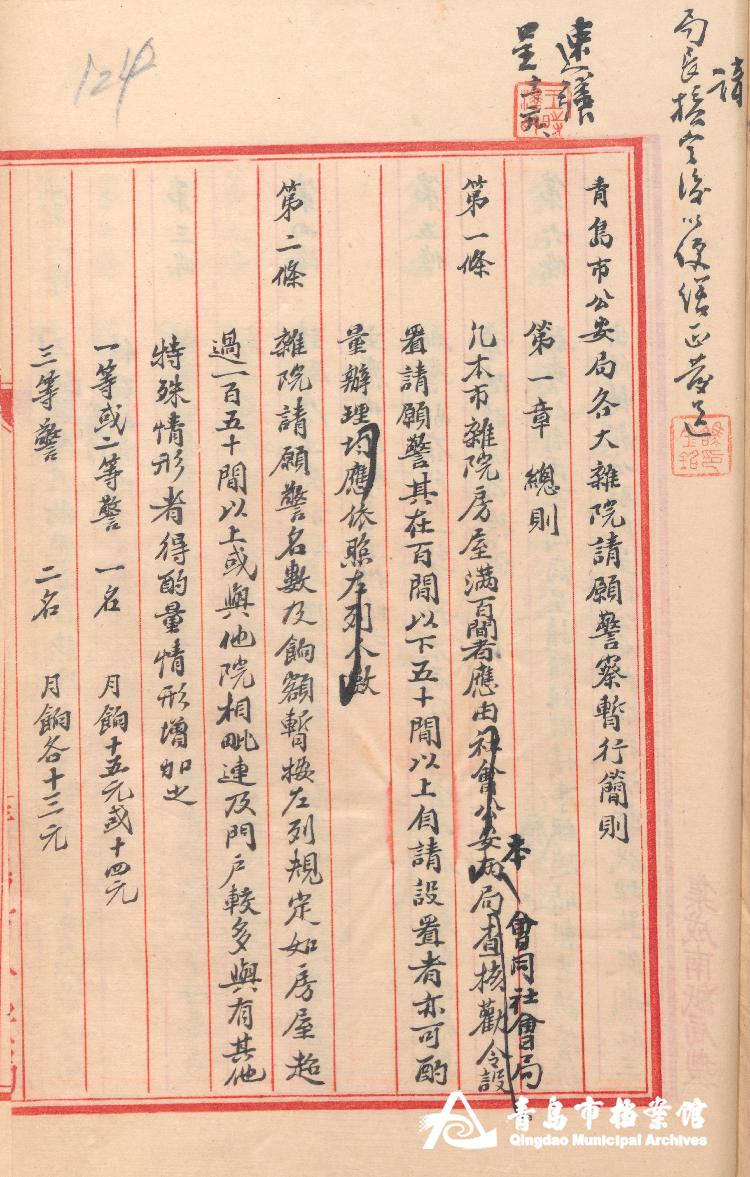 請
局長核定後以便繕正
速繕
呈
124
青島市公安局各大雜院請願警察暫行簡則
第一章 總則
第一條 凡本市雜院房屋滿百間者應由社會公安兩局查核勸令設
本
會同社會局
置請願警其在百間以下五十間以上自請設置者亦可酌
量辦理均應依照左列
第二條 雜院請願警名數及餉額暫按左列規定如房屋超
過一百五十間以上或與他院相毗連及門戶較多與有其他
特殊情形者得酌量情形增加之
一等或二等警 一名 月餉十五元或十四元
三等警 二名 月餉各十三元
青島市檔案館
Qingdao Municipal Archives